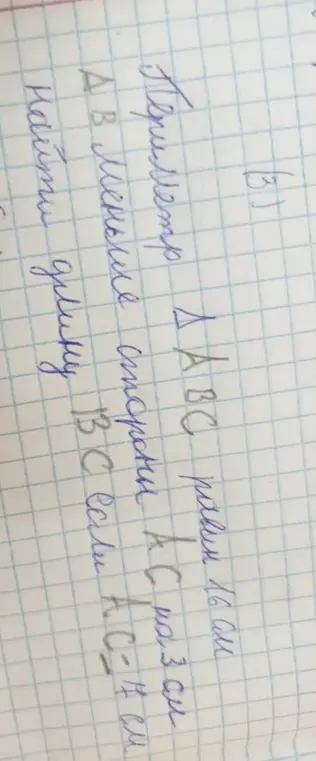 (3)
Периметр Δ ABC равен 16 см
AB меньше стороны AC на 3 см
найти длину BC если AC = 7 см